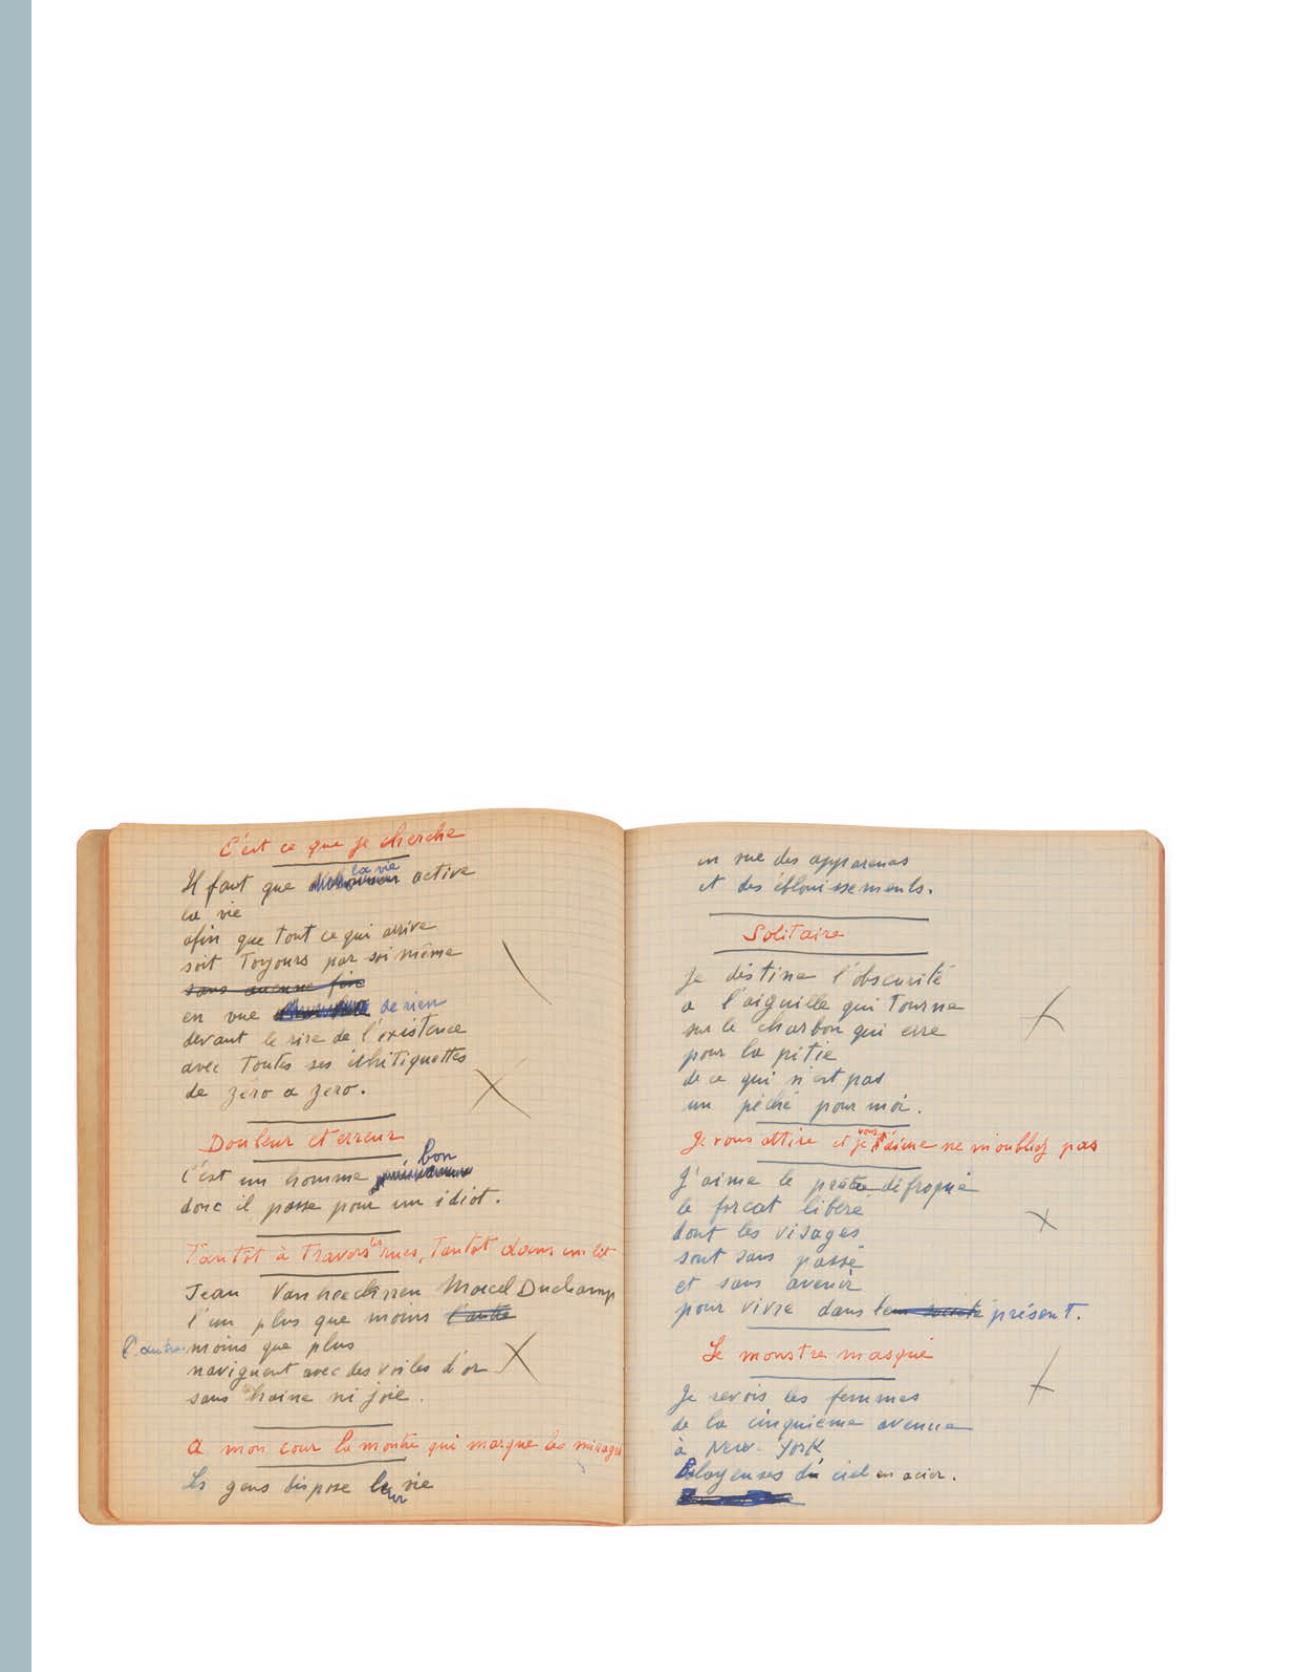 C'est ce que je cherche
la vie
Il faut que active
la vie
afin que tout ce qui arrive
soit Toujours par soi même
sans aucune foi
en vue de rien
devant le rire de l'existence
avec Toutes ses
de zéro a zéro.
Douleur et erreur
bon
C'est un homme
donc il passe pour un idiot.
Tantôt à Travers les rues, Tantôt dans un lit
Jean Marcel Duchamp
l'un plus que moins l'autre
l'autre moins que plus
naviguent avec des voiles d'or
sans haine ni joie.
a mon cour la montre qui marque les mirages
Les gens dispose leur vie
en vue des apparences
et des éblouissements.
Solitaire
Je destine l'obscurité
a l'aiguille qui Tourne
sur le charbon qui erre
pour la pitie
de ce qui n'est pas
un péché pour moi.
Je vous attire et je vous aime ne m'oubliez pas
J'aime le pretre défroqué
le forcat libere
dont les visages
sont sans passé
et sans avenir
pour vivre dans leur societe présent.
Le monstre masqué
Je revois les femmes
de la cinquieme avenue
à New-York
du ciel en acier.